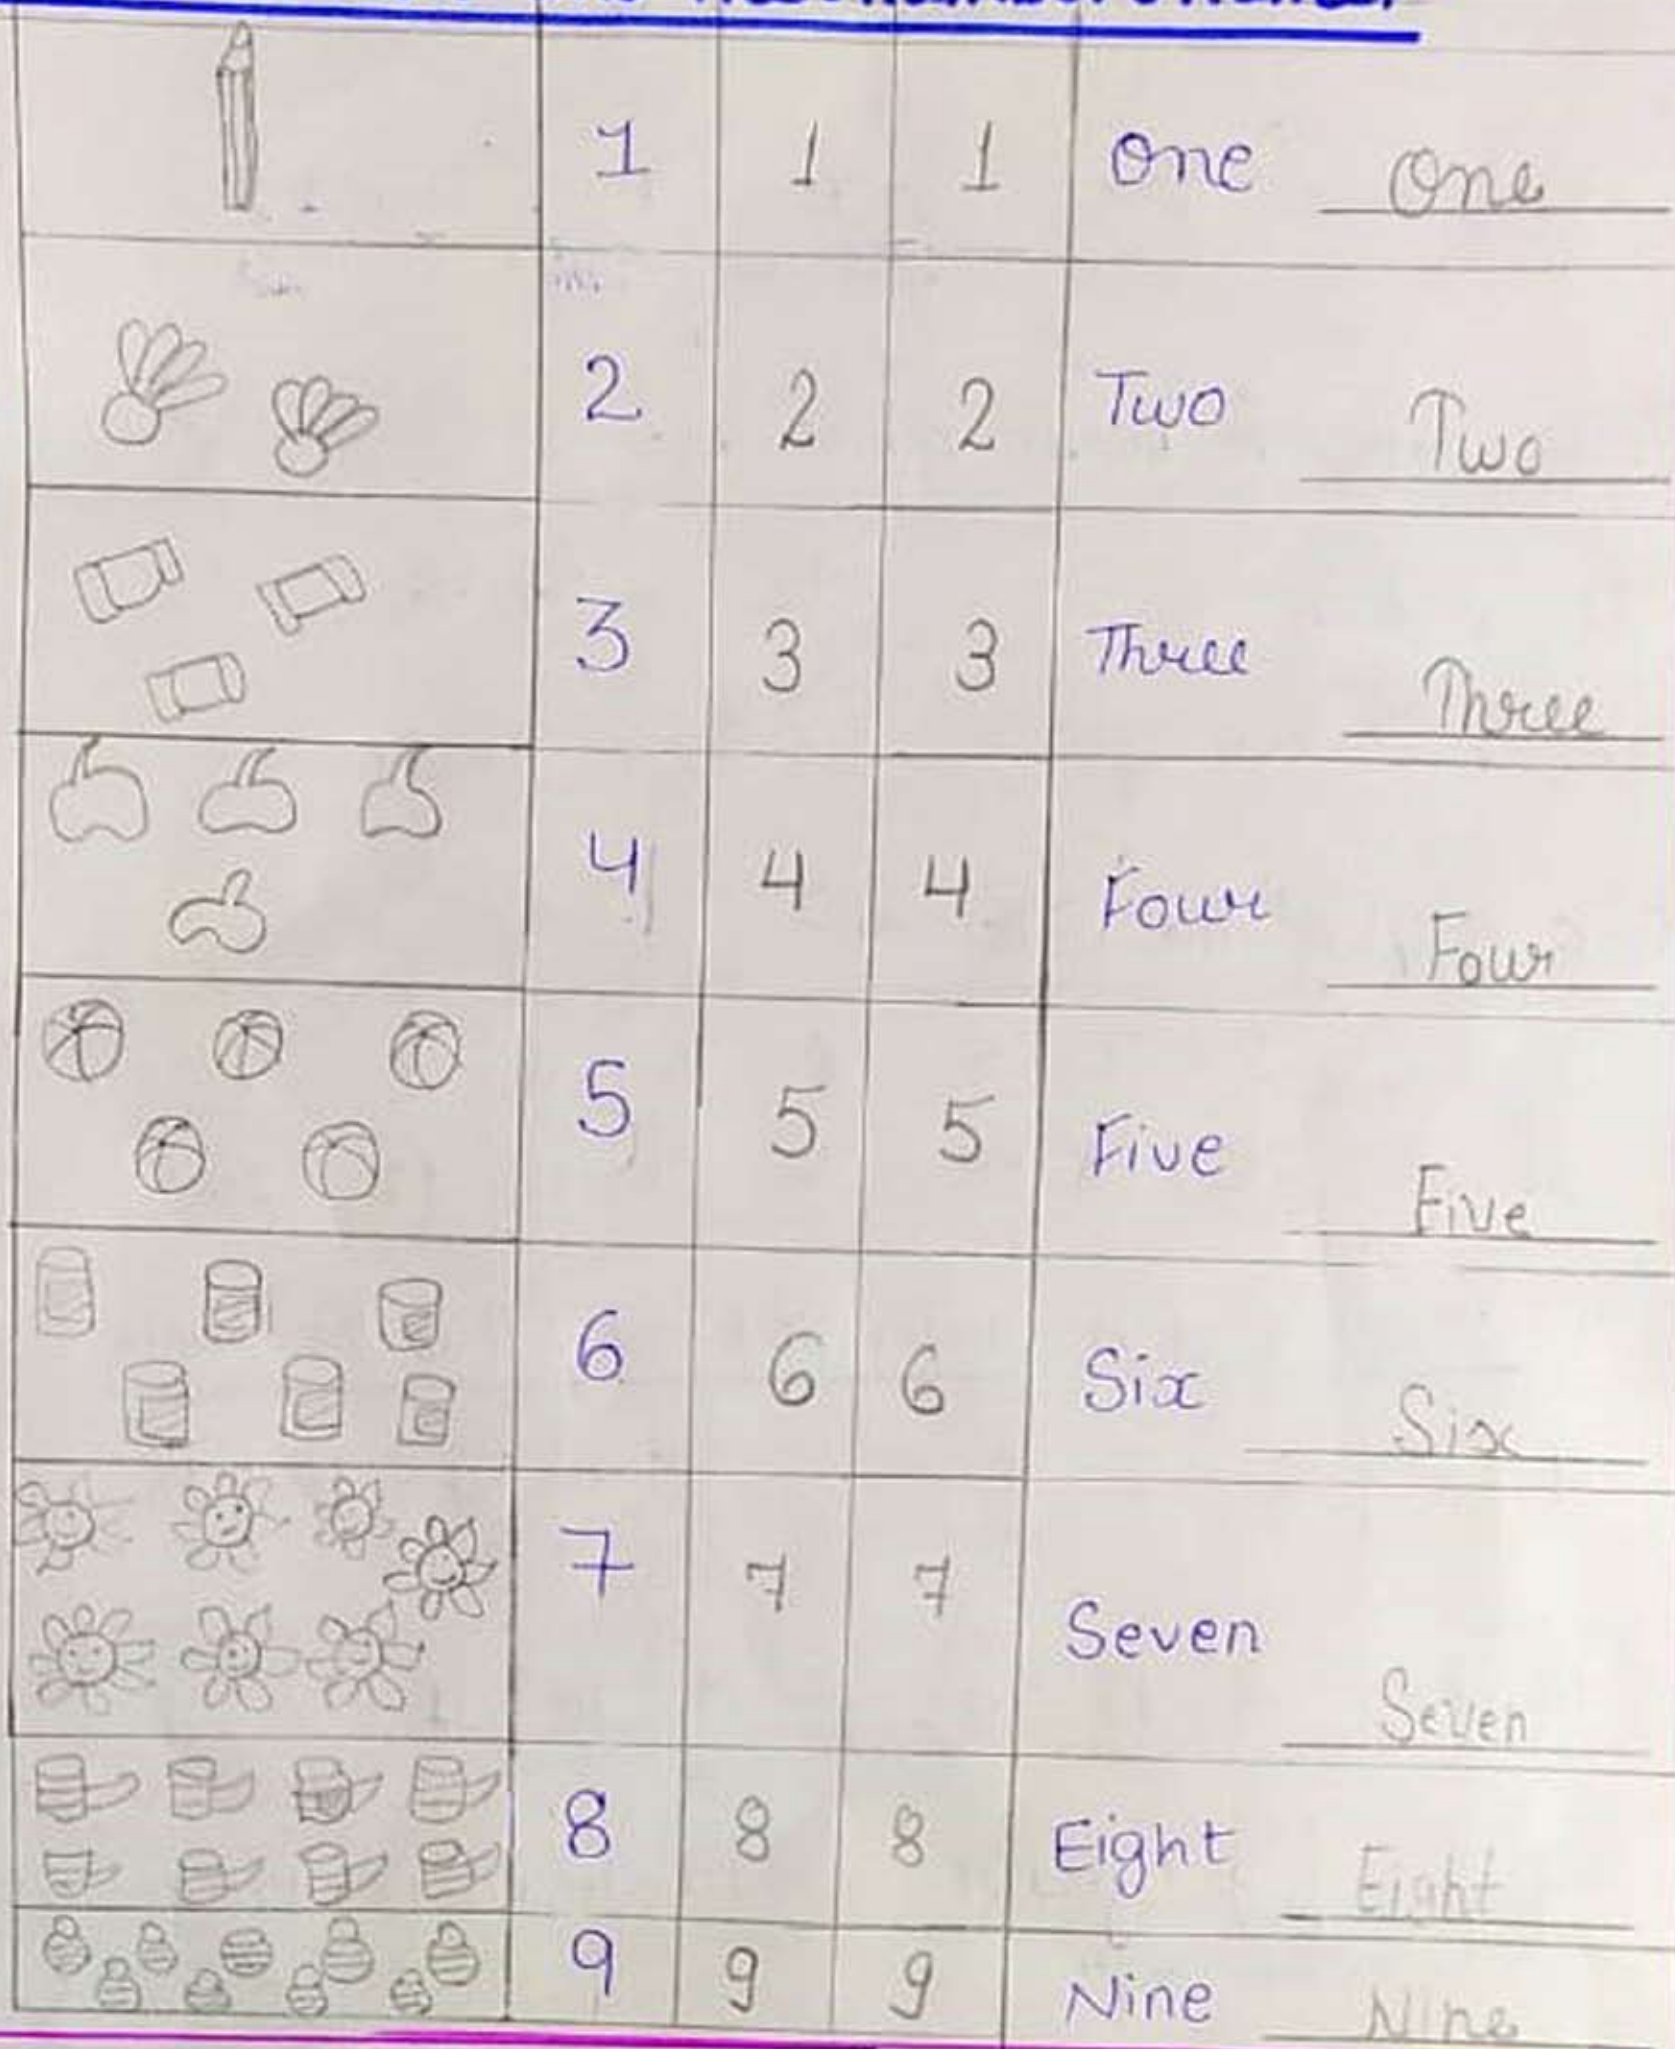 1 1 1 One One
2 2 2 Two Two
3 3 3 Three Three
4 4 4 Four Four
5 5 5 Five Five
6 6 6 Six Six
7 7 7 Seven Seven
8 8 8 Eight Eight
9 9 9 Nine Nine